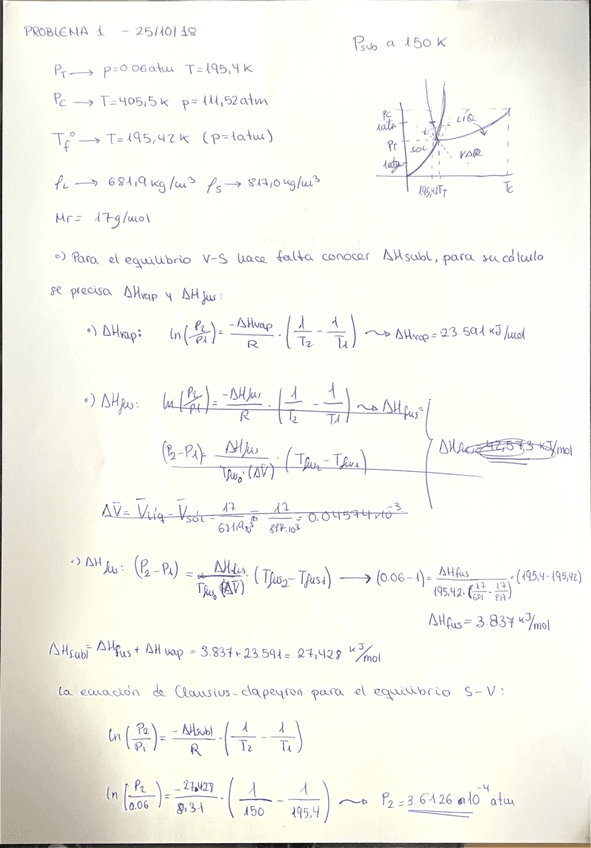 PROBLEMA 1 - 25/10/18
Psub a 150 K
PT → p=0.06atm T=195,4K
Pc → T=405,5K p=111,52atm
Tf° → T=195,42K (p=1atm)
ρL → 681,9 kg/m³ ρs → 817,0 kg/m³
Mr = 17g/mol
Pc
PT
SOL
LIQ
VAP
195,42 TT
Tc
•) Para el equilibrio V-S hace falta conocer ΔHsubl, para su cálculo
se precisa ΔHvap y ΔHfus:
•) ΔHvap: ln(P2/P1) = -ΔHvap/R · (1/T2 - 1/T1) ⇝ ΔHvap = 23.591 kJ/mol
•) ΔHfus: ln(P2/P1) = -ΔHfus/R · (1/T2 - 1/T1) ⇝ ΔHfus=
(P2-P1) = ΔHfus/Tfus·(ΔV̄) · (Tfus2 - Tfus1)
ΔHfus = 42,573 kJ/mol
ΔV̄ = V̄liq - V̄sól = 17/681,9·10³ - 17/817·10³ = 0.04574·10⁻³
•) ΔHfus: (P2-P1) = ΔHfus/Tfus(ΔV̄) · (Tfus2 - Tfus1) → (0.06-1) = ΔHfus/195,42·(17/681 - 17/817) · (195,4-195,42)
ΔHfus = 3.837 kJ/mol
ΔHsubl = ΔHfus + ΔHvap = 3.837+23.591 = 27,428 kJ/mol
La ecuación de Clausius-Clapeyron para el equilibrio S-V:
ln(P2/P1) = -ΔHsubl/R · (1/T2 - 1/T1)
ln(P2/0.06) = -27.428/8.31 · (1/150 - 1/195,4) ⇝ P2 = 3.6126·10⁻⁴ atm